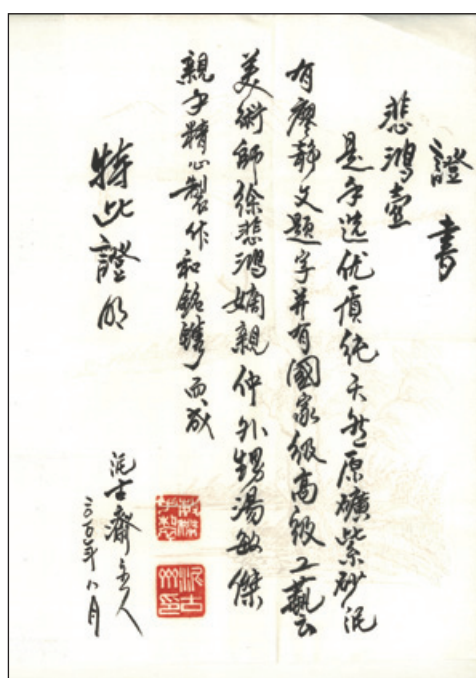 證書
悲鴻壷
是手选优質纯天然原礦紫砂泥
有廖静文題字并有國家級高級工藝
美術師徐悲鴻嫡親仲外甥湯敏傑
親手精心製作和銘鐫而成
特此證明
泥古齋主人